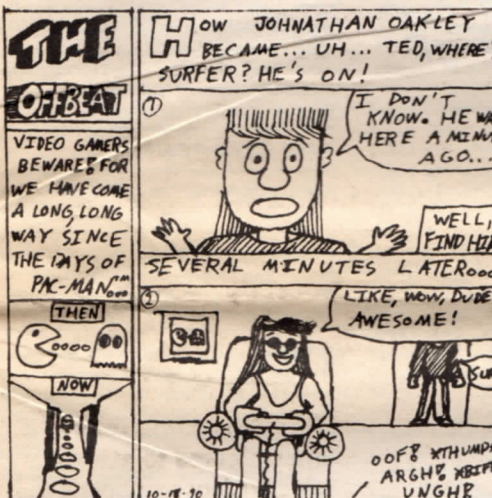 THE
OFFBEAT
VIDEO GAMERS
BEWARE! FOR
WE HAVE COME
A LONG, LONG
WAY SINCE
THE DAYS OF
PAC-MAN™...
THEN
NOW
HOW JOHNATHAN OAKLEY
BECAME... UH... TED, WHERE
SURFER? HE'S ON!
①
I DON'T
KNOW. HE WA
HERE A MINU
AGO...
WELL,
FIND HI
SEVERAL MINUTES LATER...
②
LIKE, WOW, DUDE
AWESOME!
SU
OOF! *THUMP
ARGH! *BIFF
UNGH!
10-18-90